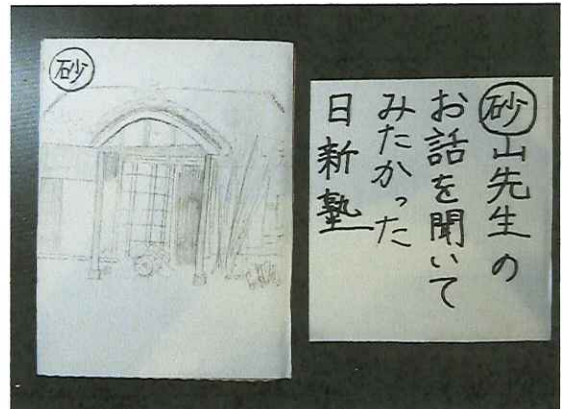 砂
砂山先生の
お話を聞いて
みたかった
日新塾